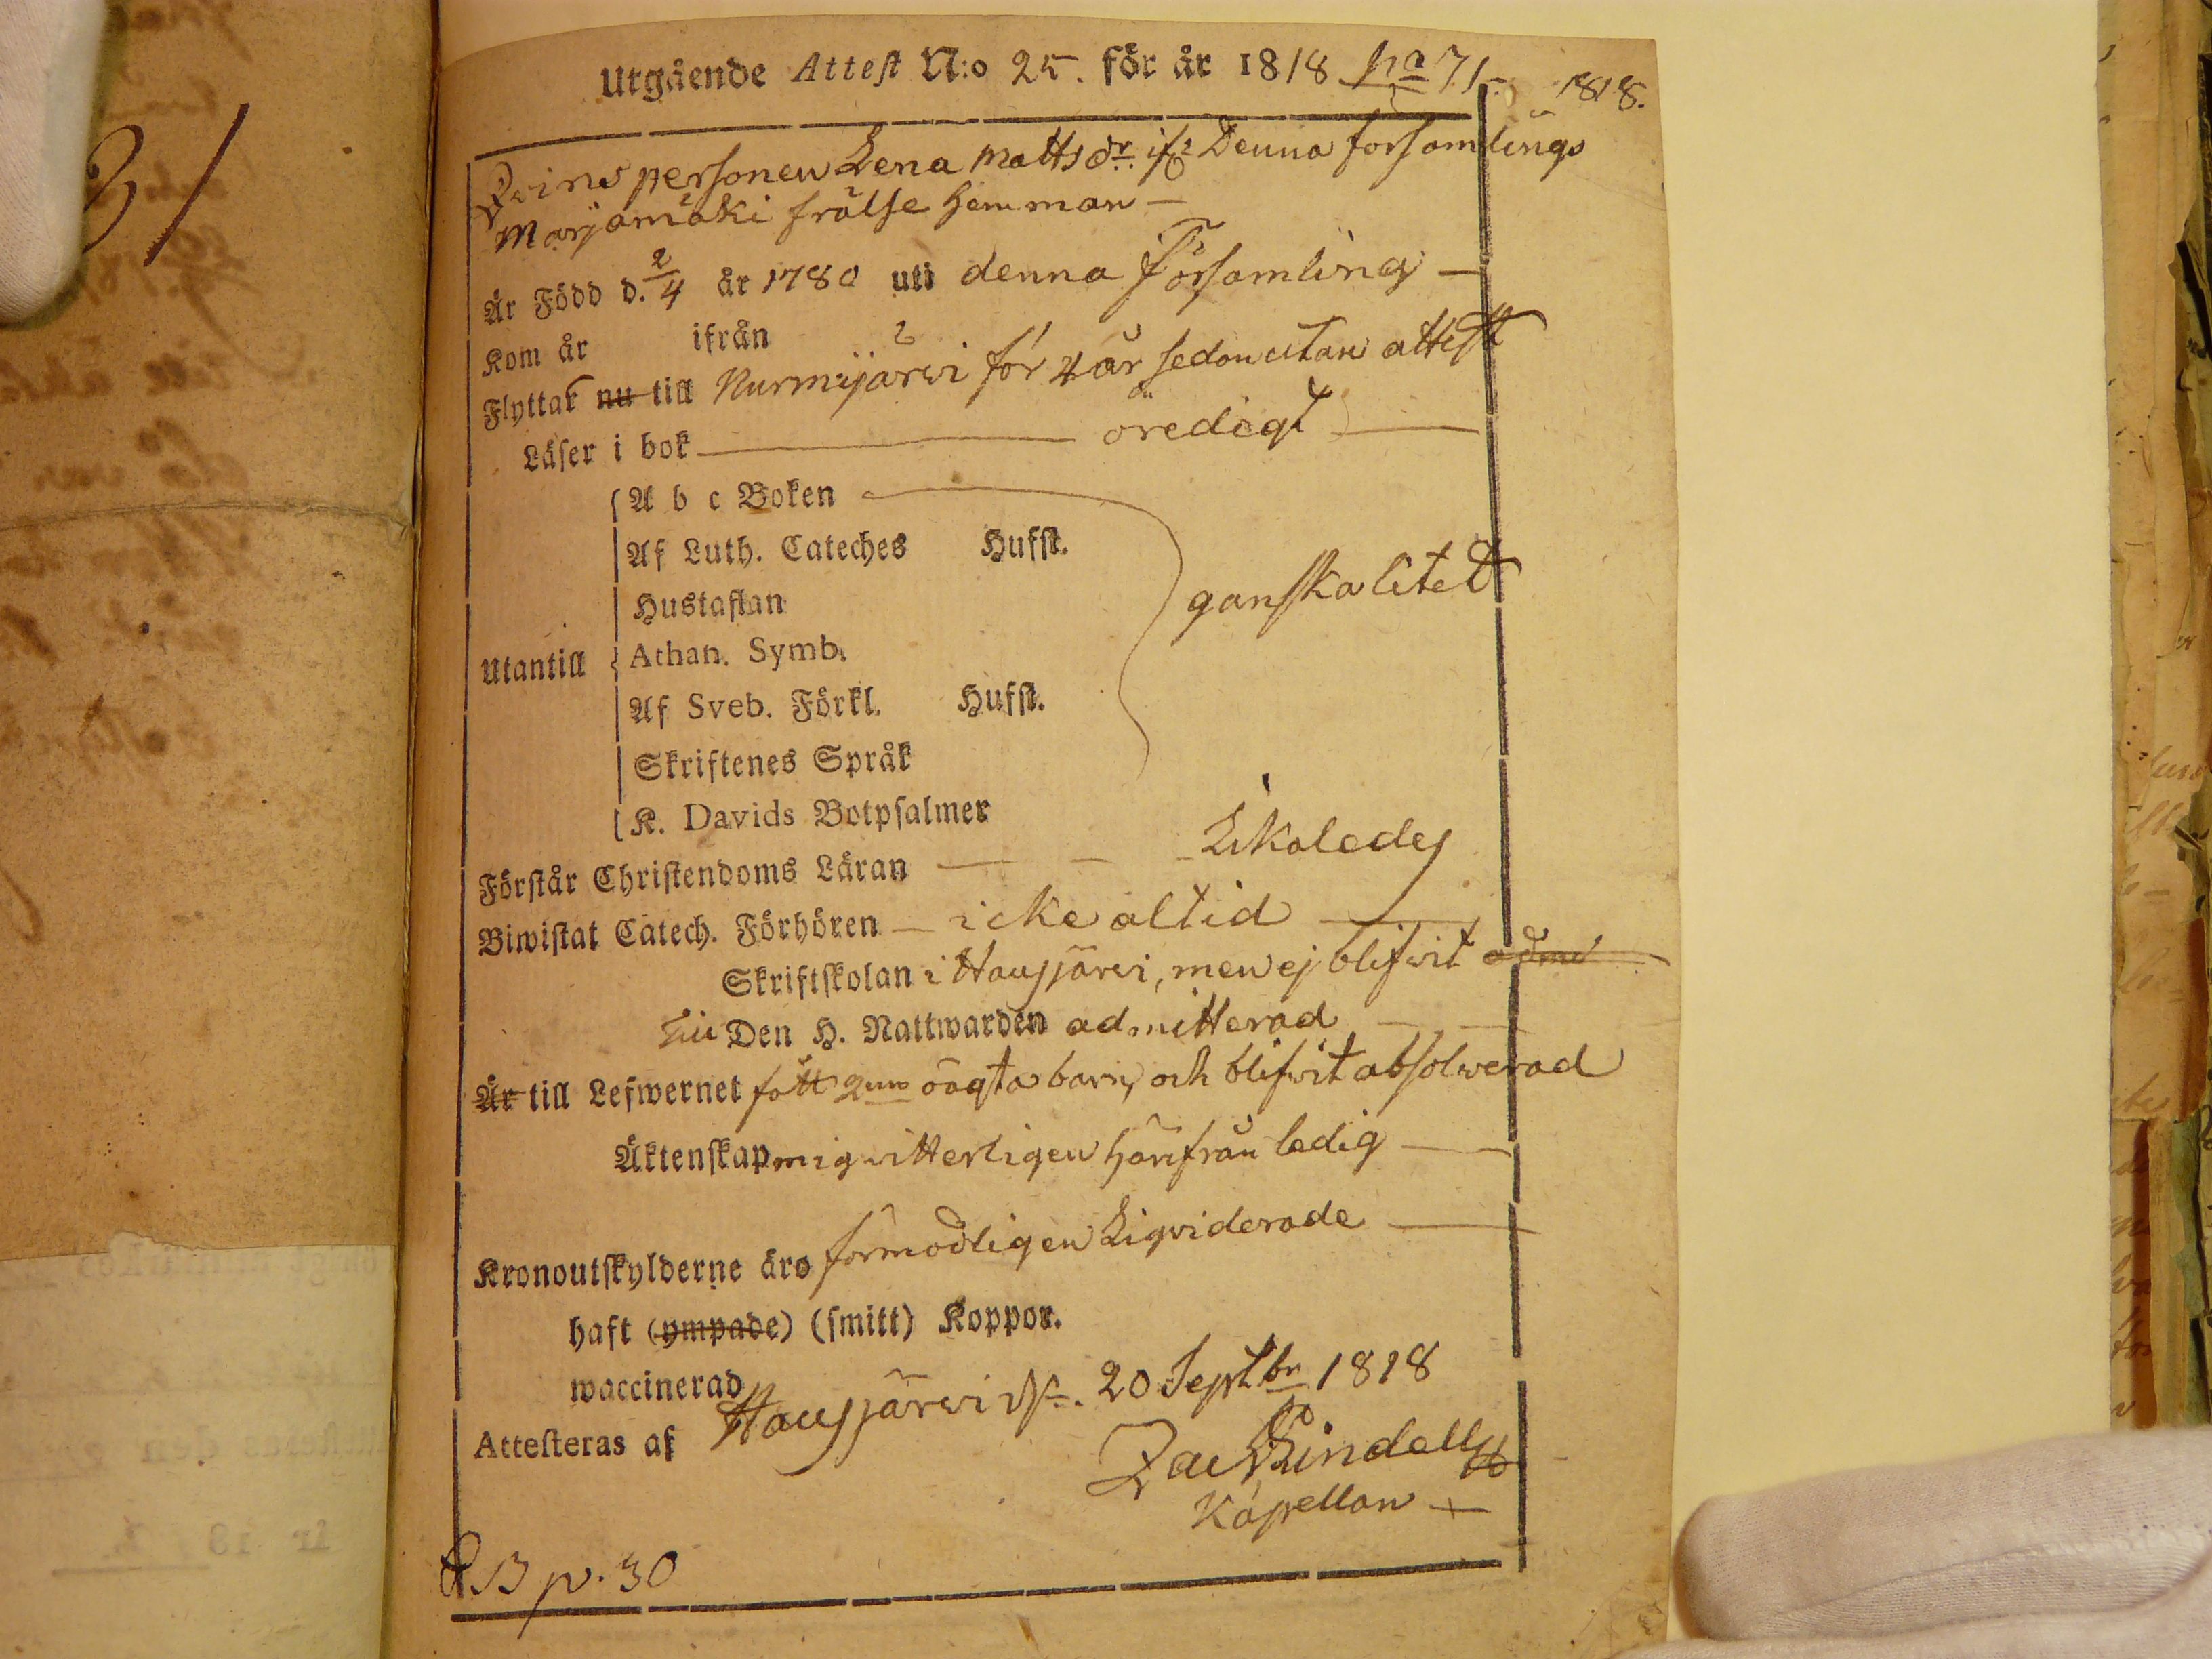 Utgående Attest N:o 25. för år 1818 pa 71. 1818.
31
Qvins personen Lena Matts dr. ifr Denna forsamlings
Marjamäki frälse hemman —
Är Född d. 2/4 år 1780 uti denna Församling —
Kom år ifrån
Flyttat nu till Nurmijärvi för 4 år sedan utan attest
Läser i bok — oredigt —
A b c Boken
Af Luth. Cateches Hufst.
Hustaflan
ganska litet
Utantill
Athan. Symb.
Af Sveb. Förkl. Hufst.
Skriftenes Språk
K. Davids Botpsalmer
Förstår Christendoms Läran — — Likaledes
Biwistat Catech. Förhören — icke altid —
Skriftskolan i Hausjärvi, men ej blifvit adm
till Den H. Nattwarden admitterad — —
Är till Lefwernet fått 2ne oägta barn, och blifvit absolverad
Äktenskap mig vitterligen härifrån ledig —
Kronoutskylderne äro förmodligen Liqviderade —
haft (ympade) (smitt) Koppor.
waccinerad
Attesteras af Hausjärvi d. 20 Septbr 1818
Zac Lindell
Kapellan
RB p. 30